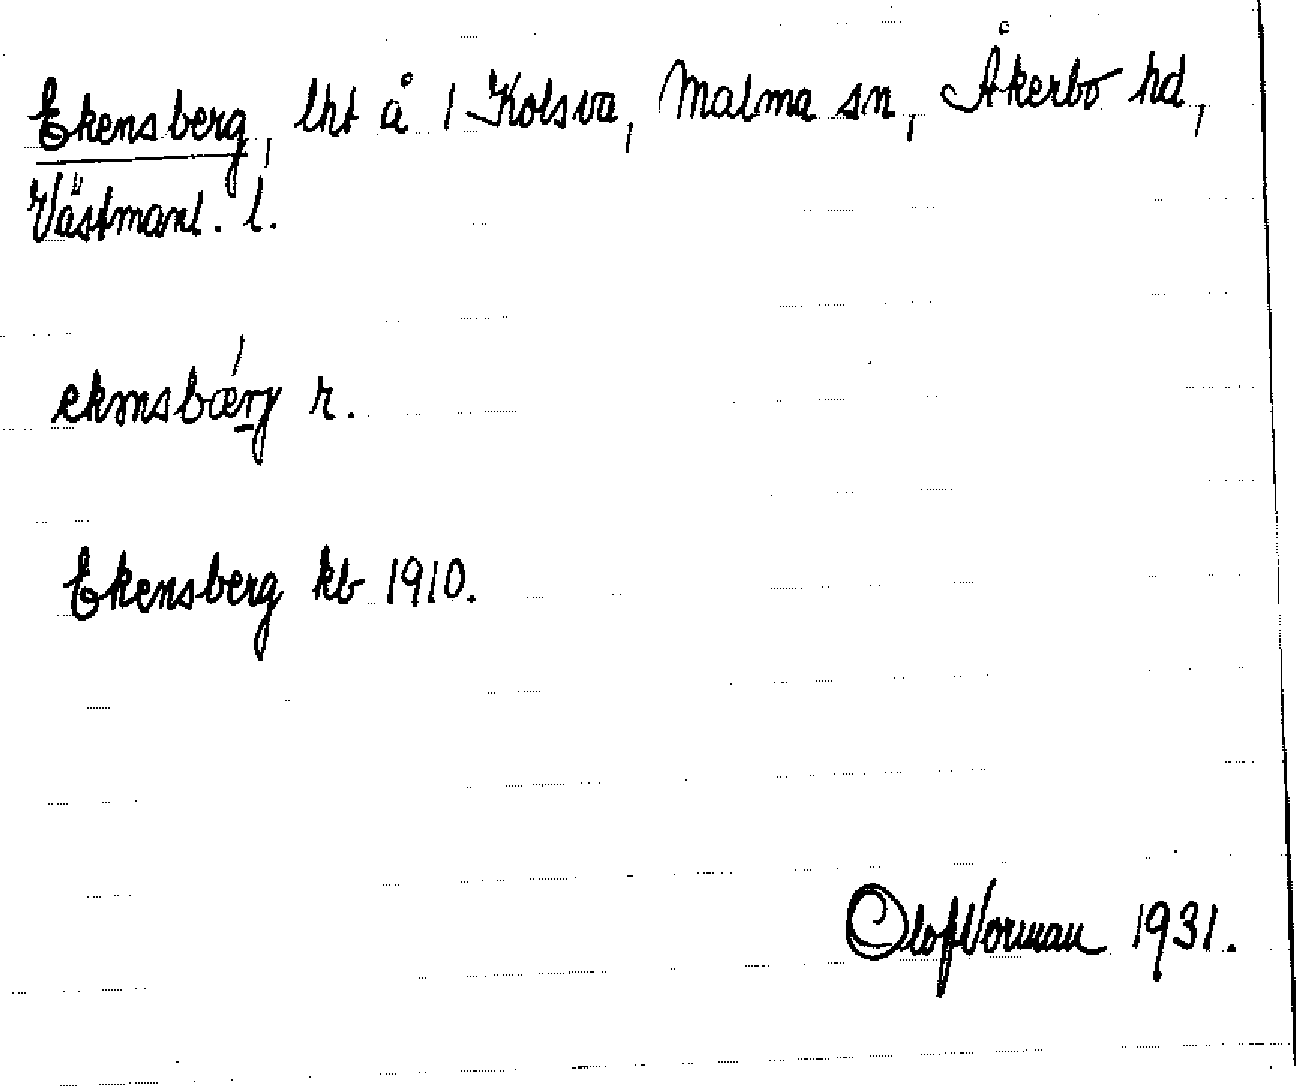 Ekensberg, lht å 1 Kolsva, Malma sn, Åkerbo hd,
Västmanl. l.
ekɷnsbǽrg r.
Ekensberg kb 1910.
Olof Norman 1931.